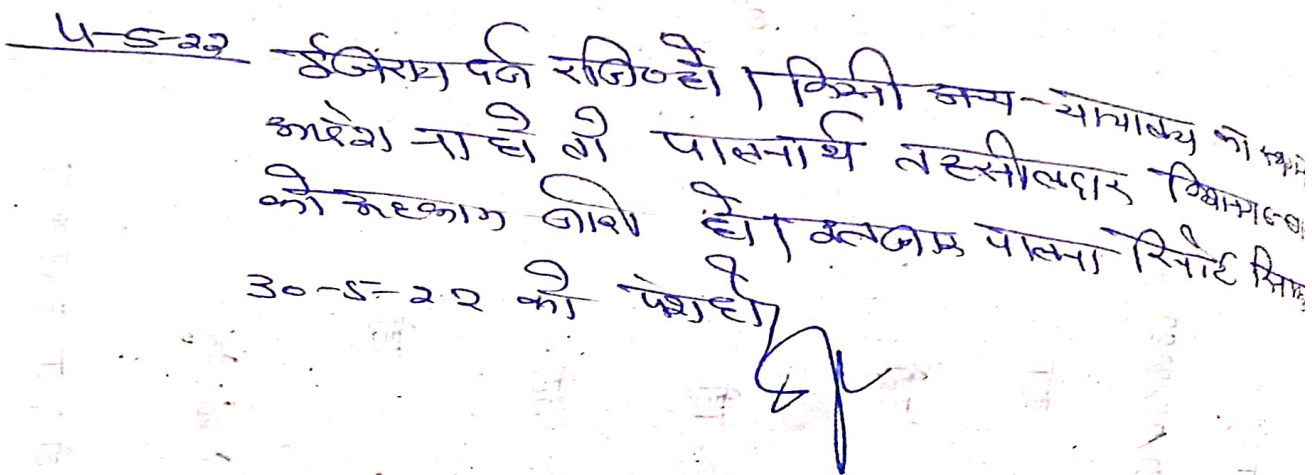 4-5-22 ईजराय दर्ज रजि० हो। किसी अन्य न्यायालय का स्थगन
आदेश ना हो तो पालनार्थ तहसीलदार
को अहकाम जारी हो। इन्तजार पालना रिपोर्ट
30-5-22 को पेश हो